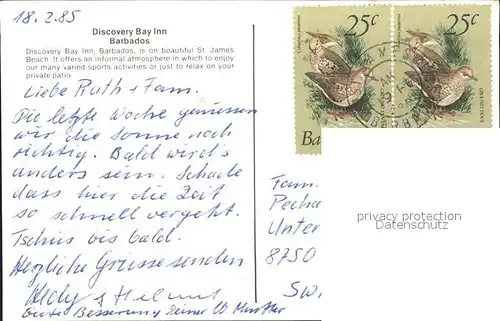 18.2.85
Discovery Bay Inn
Barbados
Discovery Bay Inn; Barbados, is on beautiful St. James
Beach. It offers an informal atmosphere in which to enjoy
our many varied sports activities or just to relax on your
private patio.
Liebe Ruth + Fam.
Die letzte Woche geniessen
wir die Sonne noch
richtig. Bald wird's
anders sein. Schade
dass hier die Zeit
so schnell vergeht.
Tschüs bis bald.
Herzliche Grüsse senden
Hedy & Helmut
Gute Besserung Deiner lb. Mutter
25c
25c
GROUND DOVE
Ba
Fam.
Pecha
Unter
8750
Sw.
privacy protection
Datenschutz